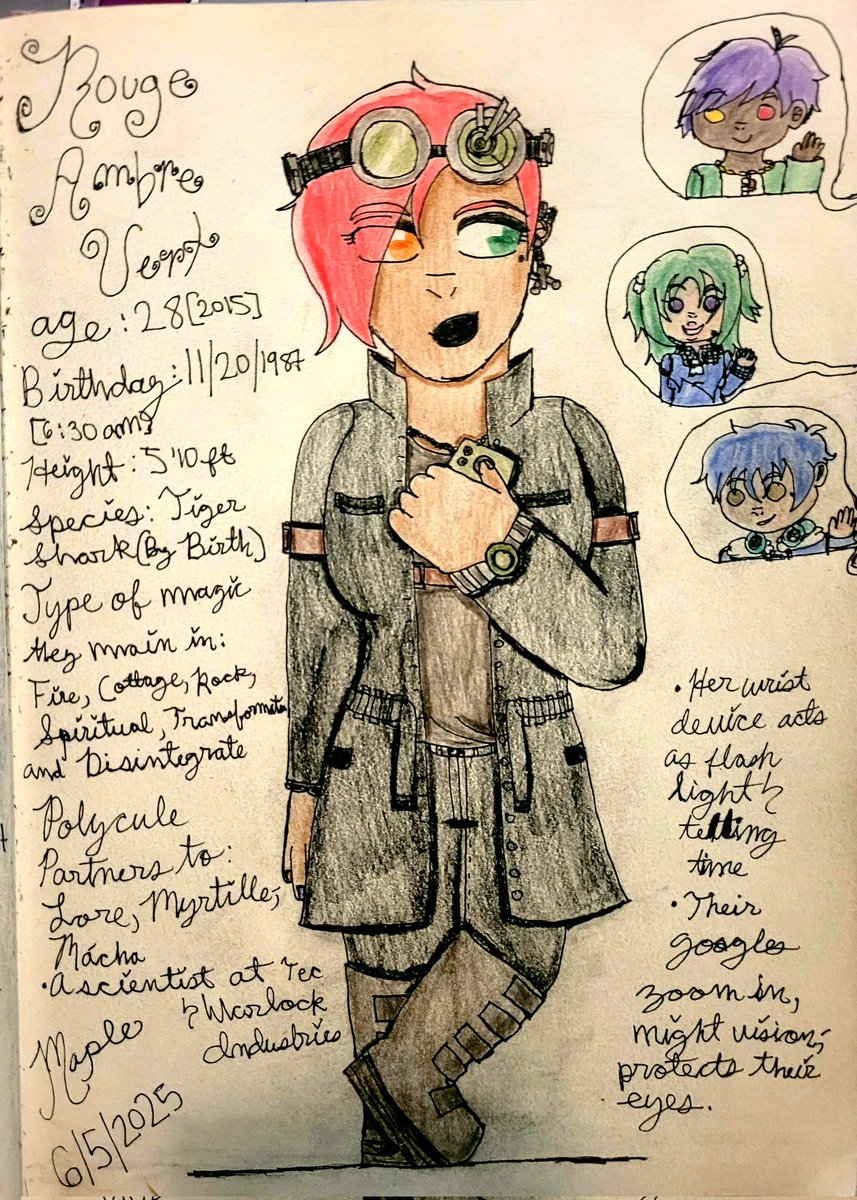 Rouge
Ambre
Vert
age: 28[2015]
Birthday: 11/20/1987
[6:30 am]
Height: 5'10 ft
Species: Tiger
Shark (By Birth)
Type of magic
they main in:
Fire, Cottage, Rock,
Spiritual, Transformita
and Disintegrate
Polycule
Partners to:
Lore, Myrtille,
Mácha
•A scientist at Tec
& Warlock
Industries
Maple
6/5/2025
• Her wrist
device acts
as flash
light &
telling
time
• Their
googles
zoom in,
night vision,
protects their
eyes.